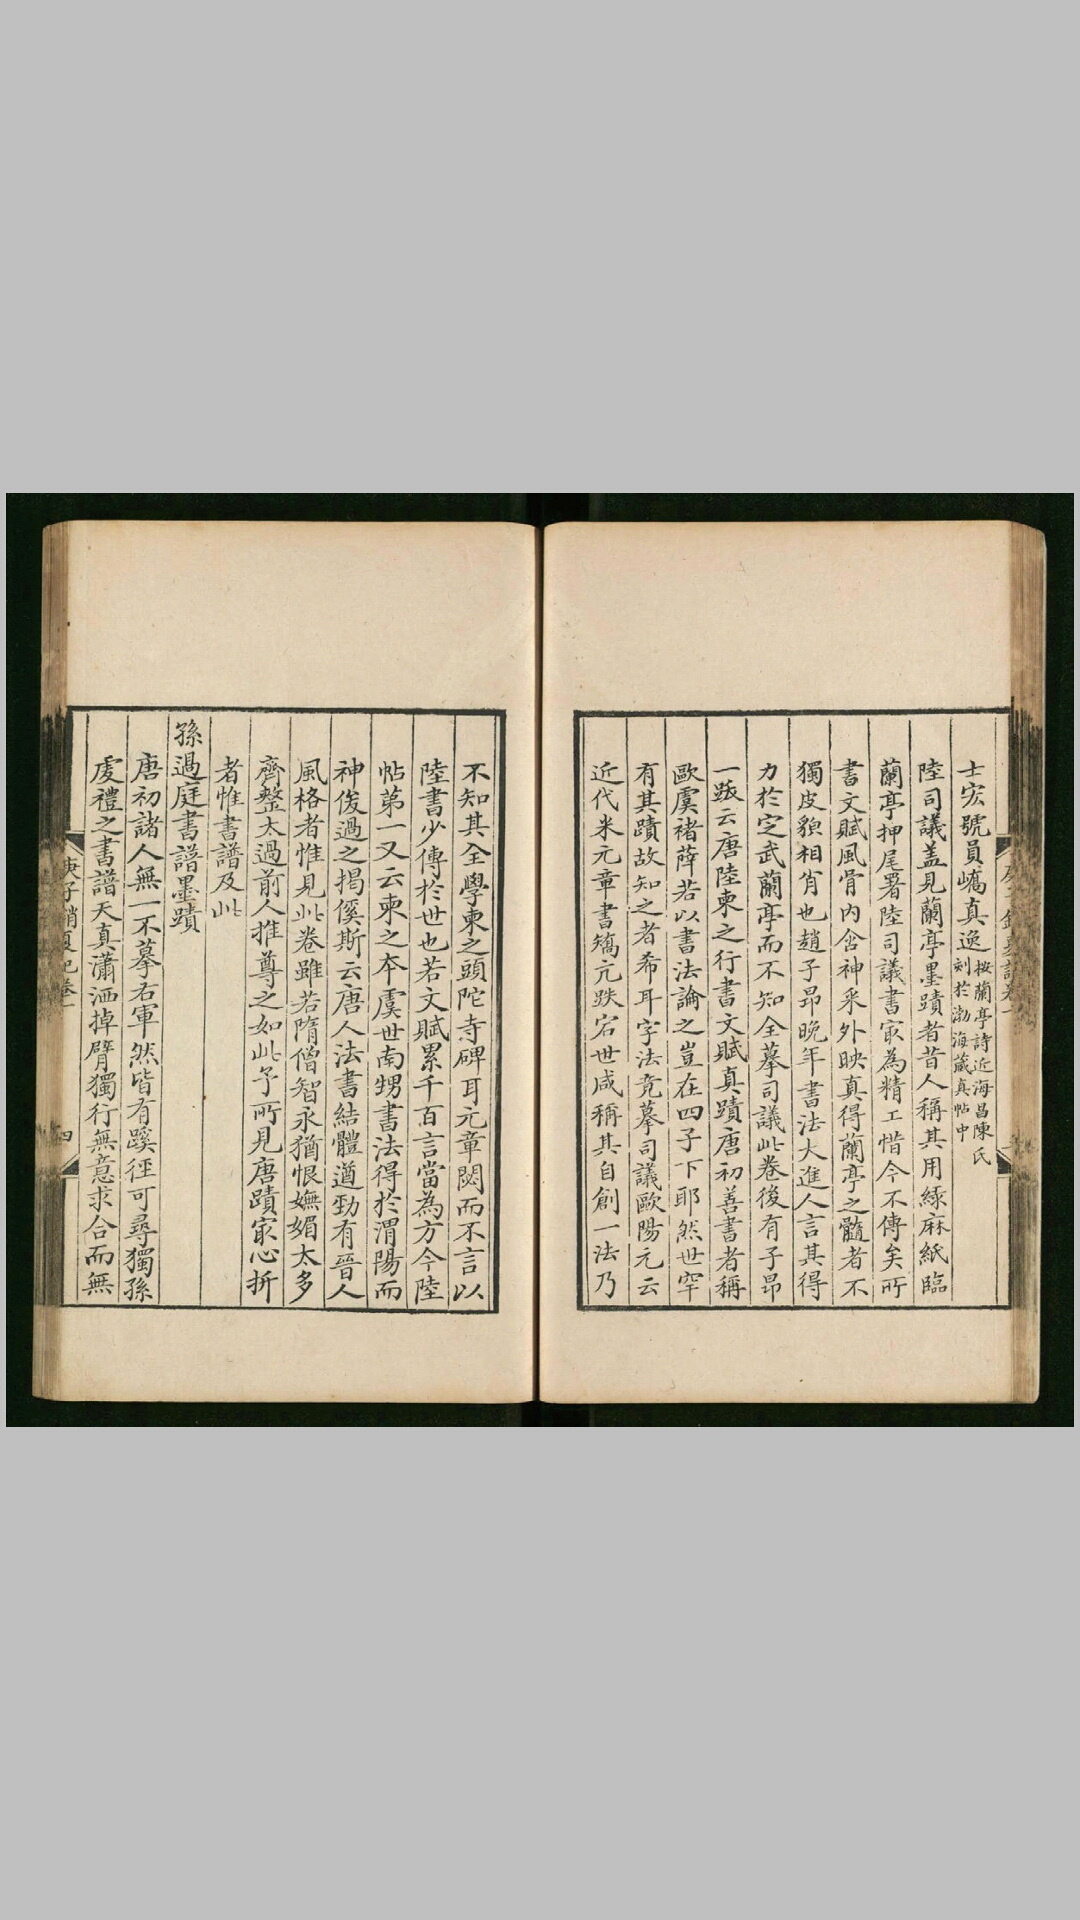 士宏號員嶠真逸按蘭亭詩近海昌陳氏
刻於渤海藏真帖中
陸司議蓋見蘭亭墨蹟者昔人稱其用綠麻紙臨
蘭亭押尾署陸司議書㝡為精工惜今不傳矣所
書文賦風骨內含神采外映真得蘭亭之髓者不
獨皮貌相肖也趙子昂晚年書法大進人言其得
力於定武蘭亭而不知全摹司議此卷後有子昂
一跋云唐陸柬之行書文賦真蹟唐初善書者稱
歐虞褚薛若以書法論之豈在四子下耶然世罕
有其蹟故知之者希耳字法竟摹司議歐陽元云
近代米元章書矯亢跌宕世咸稱其自創一法乃
不知其全學柬之頭陀寺碑耳元章閟而不言以
陸書少傳於世也若文賦累千百言當為方今陸
帖第一又云柬之本虞世南甥書法得於渭陽而
神俊過之揭傒斯云唐人法書結體遒勁有晉人
風格者惟見此卷雖若隋僧智永猶恨嫵媚太多
齊整太過前人推尊之如此予所見唐蹟㝡心折
者惟書譜及此
孫過庭書譜墨蹟
唐初諸人無一不摹右軍然皆有蹊徑可尋獨孫
虔禮之書譜天真瀟洒掉臂獨行無意求合而無
庚子銷夏記卷一
四